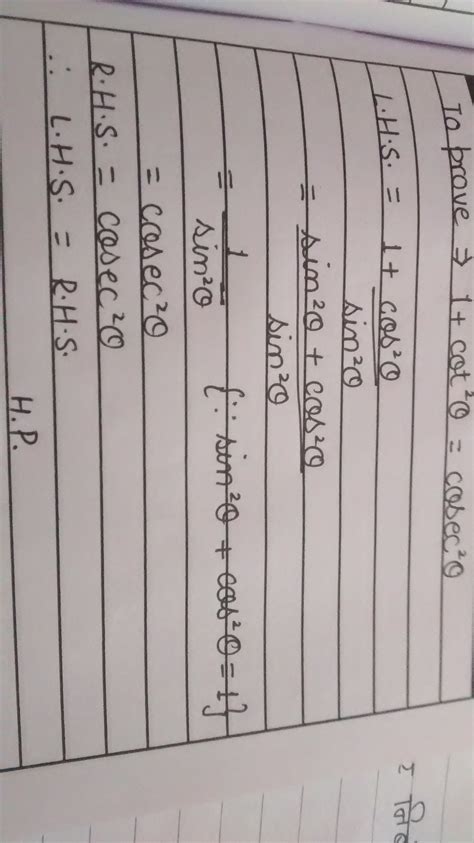 To prove ⇒ 1 + cot²θ = cosec²θ
L.H.S. = 1 + cos²θ / sin²θ
= sin²θ + cos²θ / sin²θ
= 1 / sin²θ {∵ sin²θ + cos²θ = 1}
= cosec²θ
R.H.S. = cosec²θ
∴ L.H.S. = R.H.S.
H.P.